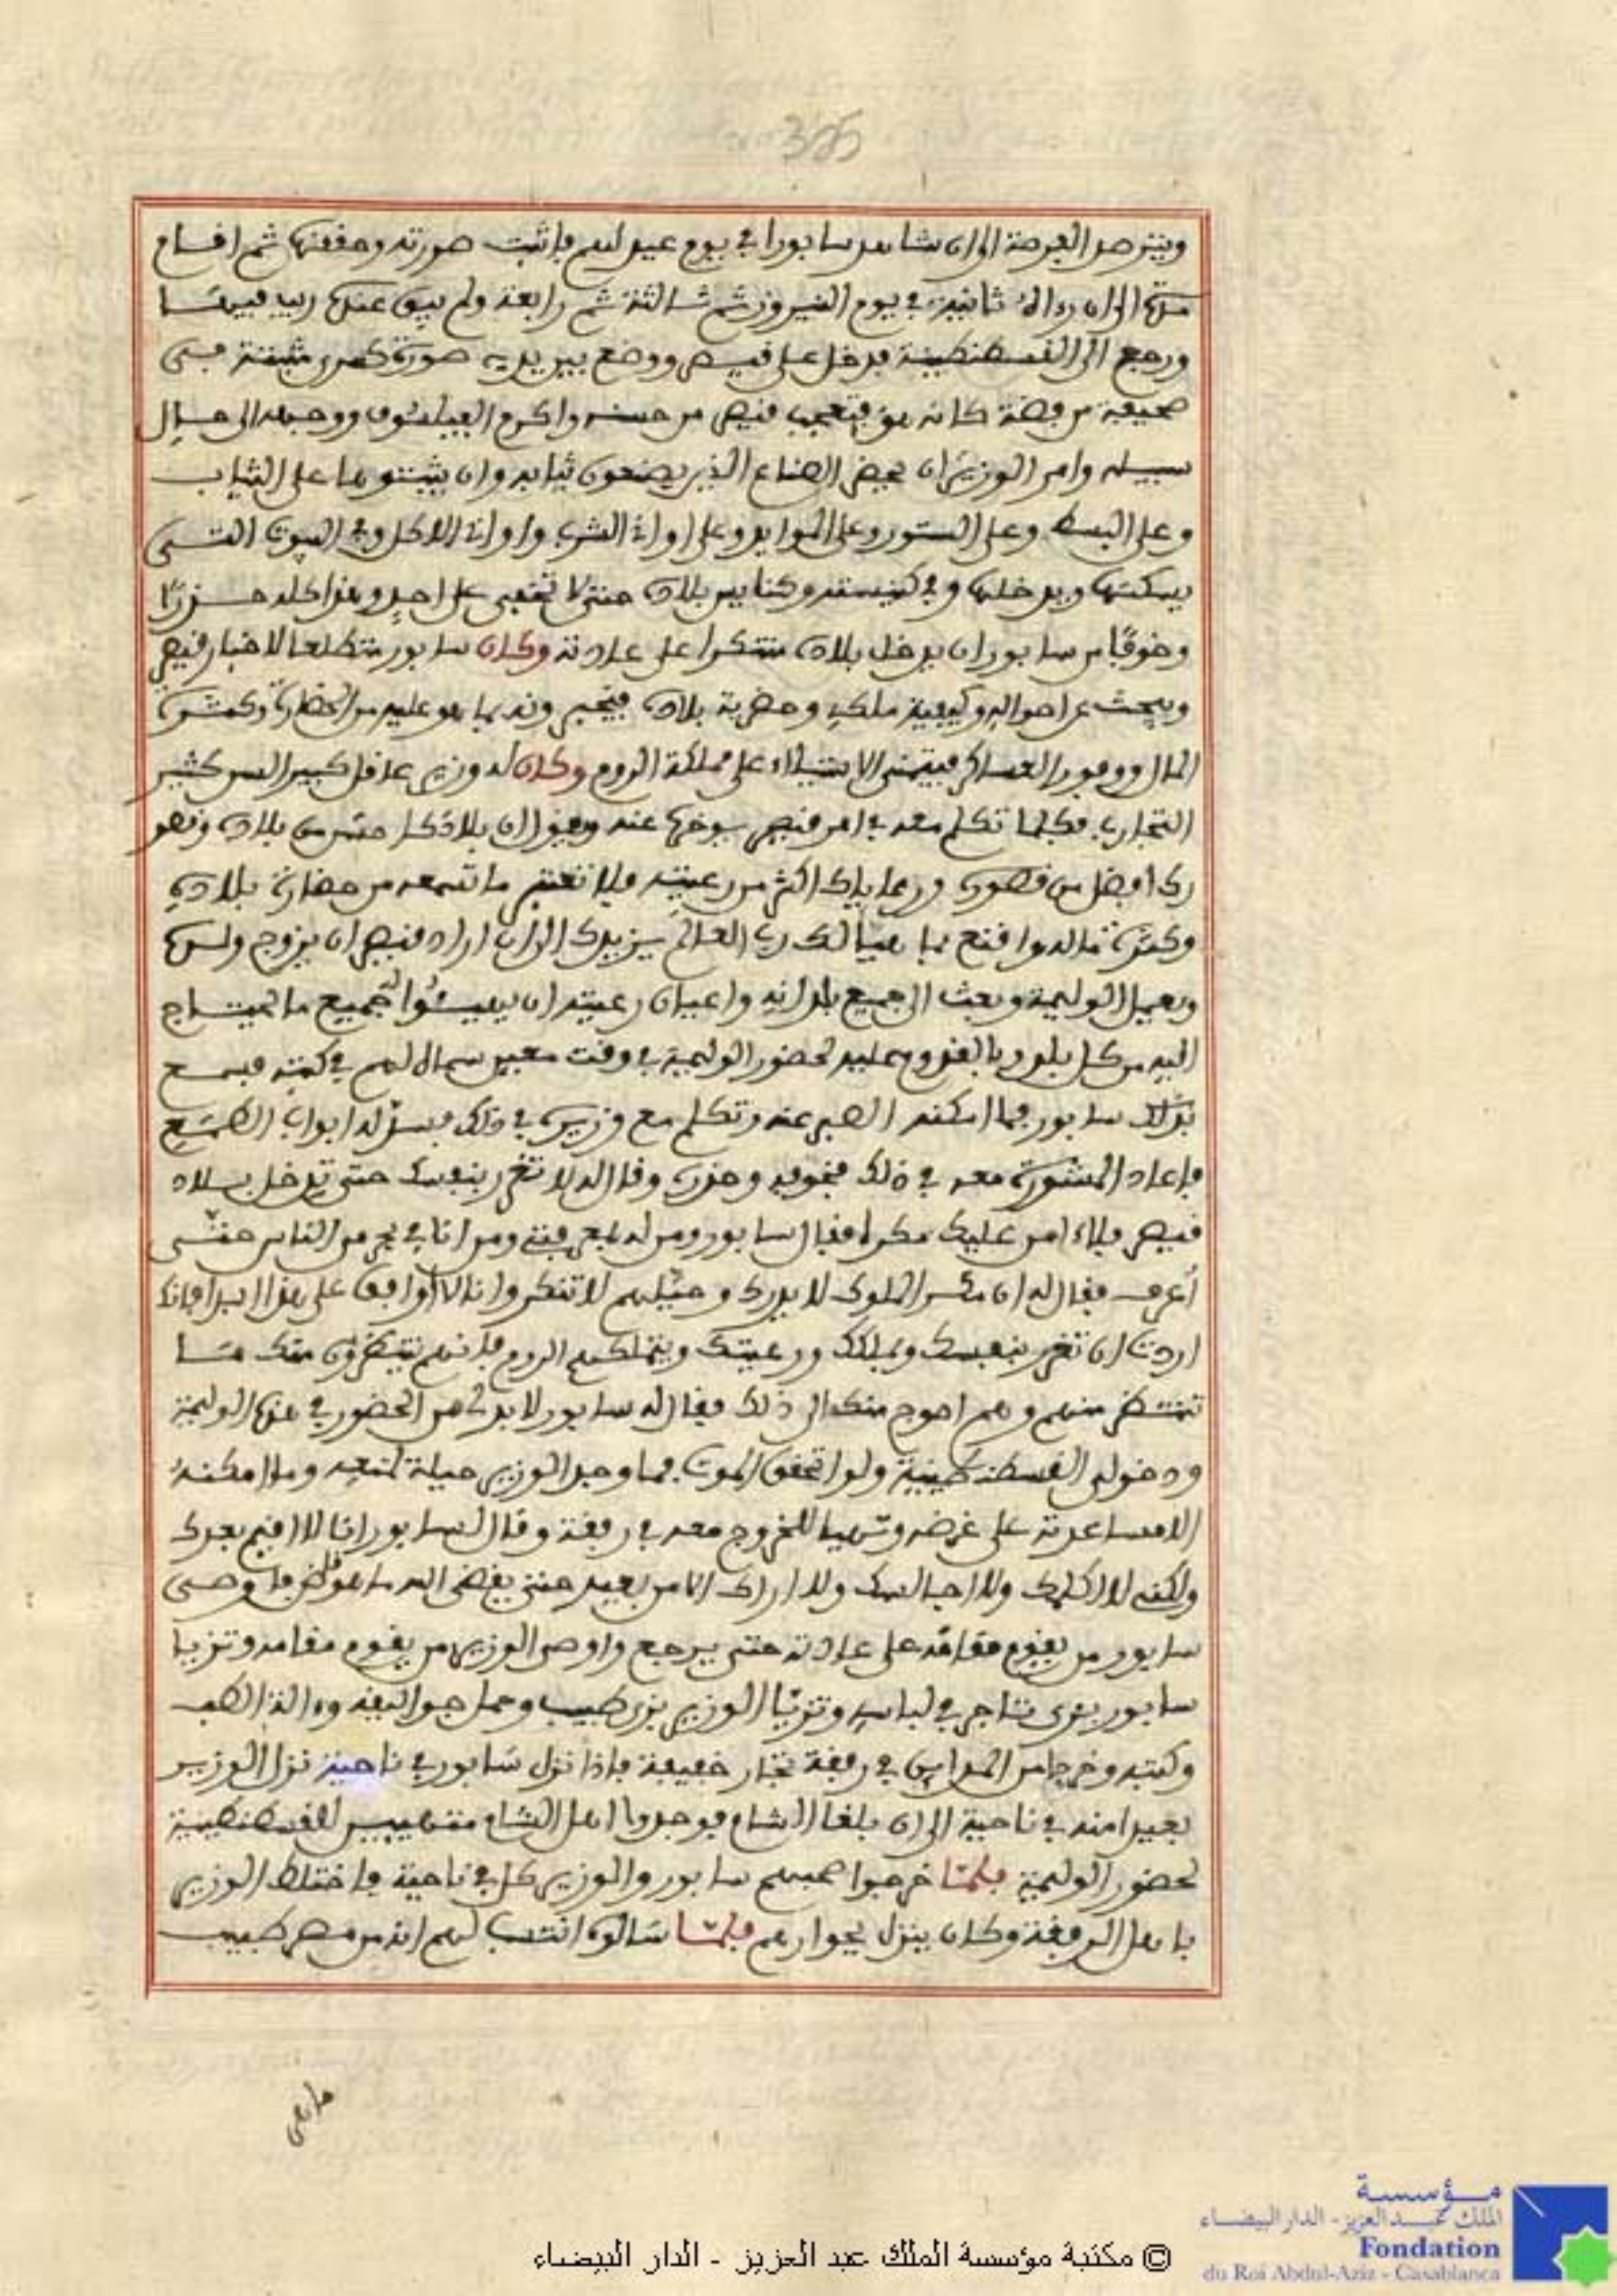 ويترصد الفرصة الى ان شاهد سابورا في يوم عيد لهم فاثبت صورته وحققها ثم اقام
مدة الى ان رءاه ثانية في يوم النيروز ثم ثالثة ثم رابعة ولم يبق عنده ريب فيها
ورجع الى القسطنطينية فدخل على قيصر ووضع بين يديه صورة كسرى مثبتة في
صحيفة من فضة كانه هو فتعجب قيصر من حسنه واكرم الفيلسوف ووجهه الى حال
سبيله وامر الوزير ان يحضر الصناع الذين يصنعون ثيابه وان يثبتوها على الثياب
وعلى البسط وعلى الستور وعلى الموايد وعلى اواني الشرب واواني الاكل وفي البيوت التي
يسكنها ويدخلها وفي كنيسته وكنايس بلاده حتى لا تخفى على احد وهذا كله حذرا
وخوفا من سابور ان يدخل بلاده متنكرا على عادته وكان سابور متطلعا لاخبار قيصر
ويبحث عن احواله وكيفية ملكه وحضرية بلاده فيخبرونه بما هو عليه من الحضارة وكثرة
المال ووفور العساكر فيتمنى الاستيلاء على مملكة الروم وكان له وزير عاقل كبير السن كثير
التجارب فكلما تكلم معه في امر قيصر يبوخها عنه ويقول ان بلادك احسن من بلاده وقصو
رك افضل من قصوره ورعاياك اكثر من رعيته فلا تغتر ما تسمعه من حضارة بلاده
وكثرة ماله واقنع بما هيأ لك رب العالم يزيدك الى ان اراد قيصر ان يزوج ولدها
ويعمل الوليمة وبعث الى جميع بلدانه واعيان رعيته ان يهيئوا لجميع ما يحتاج
اليه من كل بلد وبالقدوم عليه لحضور الوليمة في وقت معين سماه لهم في كتبه فسمع
بذلك سابور فما امكنه الصبر عنه وتكلم مع وزيره في ذلك فسد له ابواب الطمع
فاعاد المشورة معه في ذلك فخوفه وحذره وقال له لا تغرر بنفسك حتى تدخل بلاد
قيصر فلا ءامن عليك مكرا فقال سابور ومن له بمعرفتي ومن انا في بحر من الناس حتى
أعرف فقال له ان مكر الملوك لا يدرك وحيلهم لا تنكر وانا لا اوافق على هذا ابدا فانك
اردت ان تغرر بنفسك وبملكك ورعيتك ويتملكهم الروم فانهم ينتظرون منك ما
تنتظر منهم وهم احوج منك الى ذلك فقال له سابور لا بد لي من الحضور في هذه الوليمة
ودخولي القسطنطينية ولو اتحقق الموت فما وجد الوزير حيلة لمنعه وما امكنه
الا مساعدته على غرضه وتهيا للخروج معه في رفقة وقال لسابور انا لا اقيم بعدك
ولكني لا اكلمك ولا اجالسك ولا اراك الا من بعيد حتى يقضي الله ما هو قاض فاوصى
سابور من يقوم مقامه على عادته حتى يرجع واوصى الوزير من يقوم مقامه وتزيا
سابور بزي تاجر في لباسه وتزيا الوزير بزي طبيب وحمل جوالقه وءالة الطب
وكتبه وخرجا من المداين في رفقة تجار خفيفة فاذا نزل سابور في ناحية نزل الوزير
بعيدا منه في ناحية الى ان بلغا الشام فوجدوا اهل الشام متهيبين للقسطنطينية
لحضور الوليمة فلما خرجوا صحبهم سابور والوزير كل في ناحية فاختلط الوزير
باهل الرفقة وكان ينزل بجوارهم فلما سالوه انتسب لهم انه من مصر طبيب
مؤسسة
الملك عبد العزيز - الدار البيضاء
Fondation
du Roi Abdul-Aziz - Casablanca
© مكتبة مؤسسة الملك عبد العزيز - الدار البيضاء